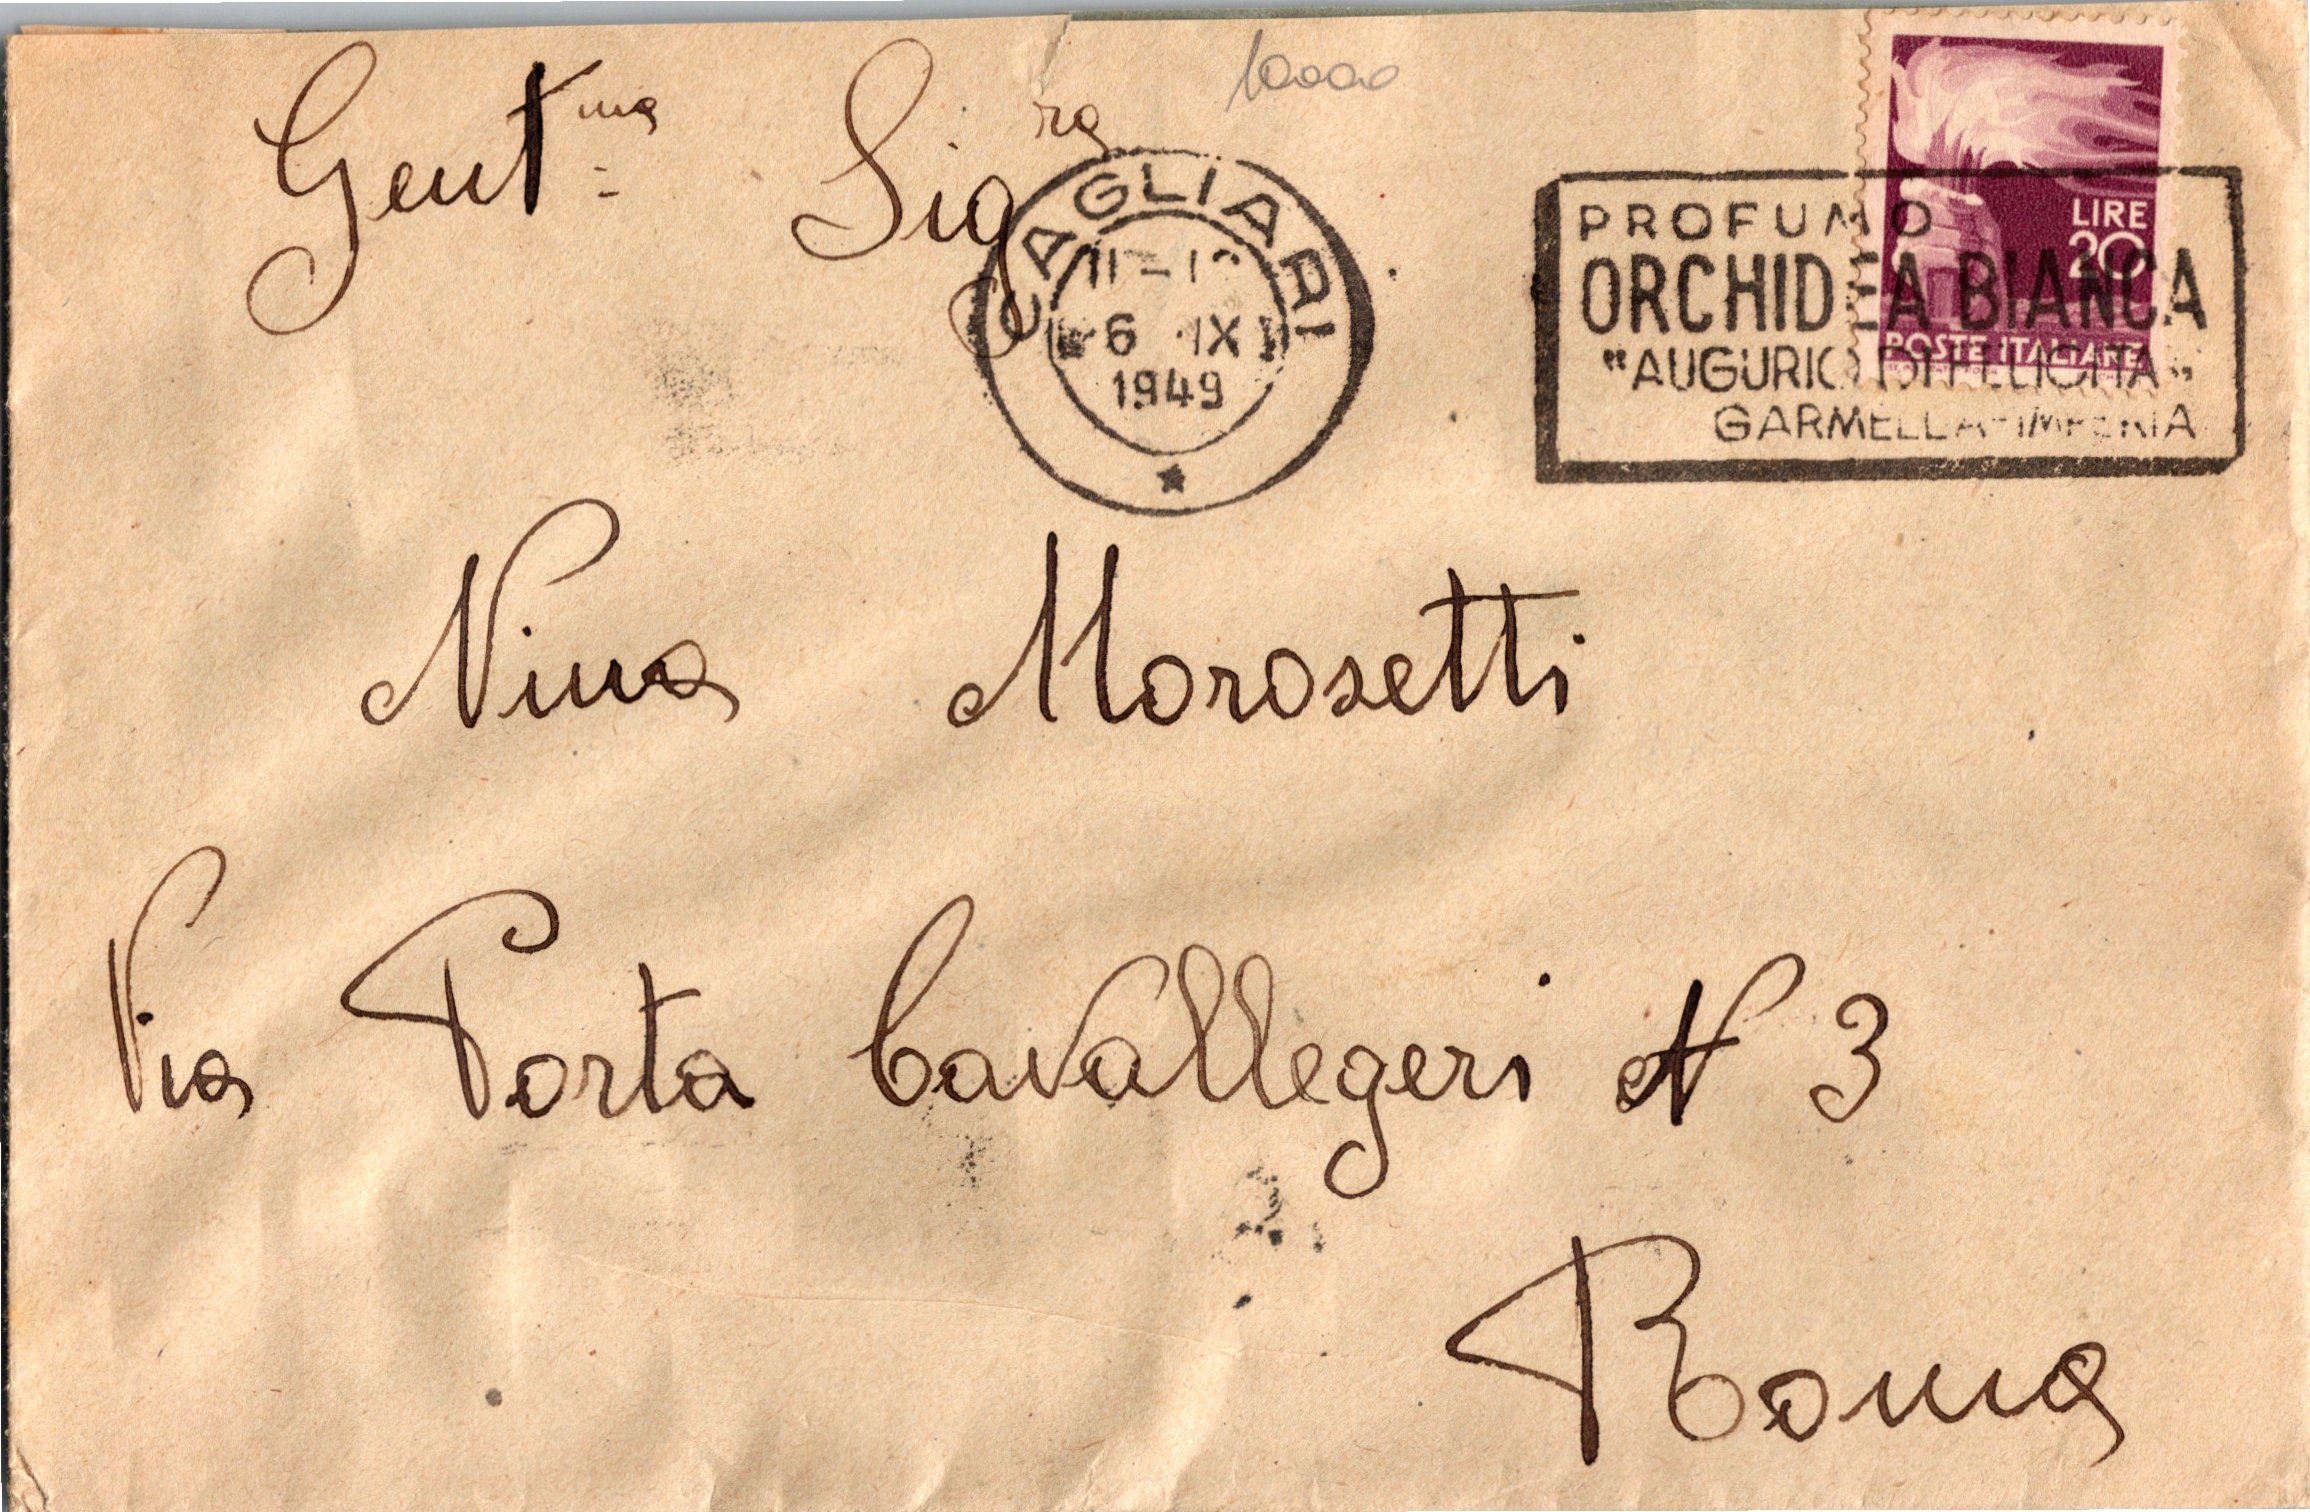 10000
Gent.ma Sig.ra
CAGLIARI
6 IX
1949
LIRE
20
POSTE ITALIANE
PROFUMO
ORCHIDEA BIANCA
"AUGURIO DI FELICITA"
GARMELLA-IMPERIA
Nina Morosetti
Via Porta Cavallegeri N 3
Roma